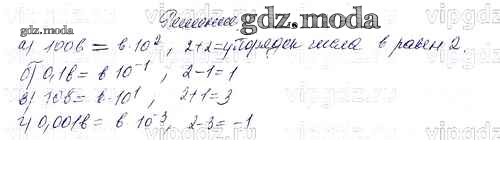 Решение.
gdz.moda
а) 100b = b·10², 2+2=4 порядок числа b равен 2.
б) 0,1b = b 10⁻¹, 2-1=1
в) 10b = b·10¹; 2+1=3
г) 0,001b = b 10⁻³, 2-3=-1